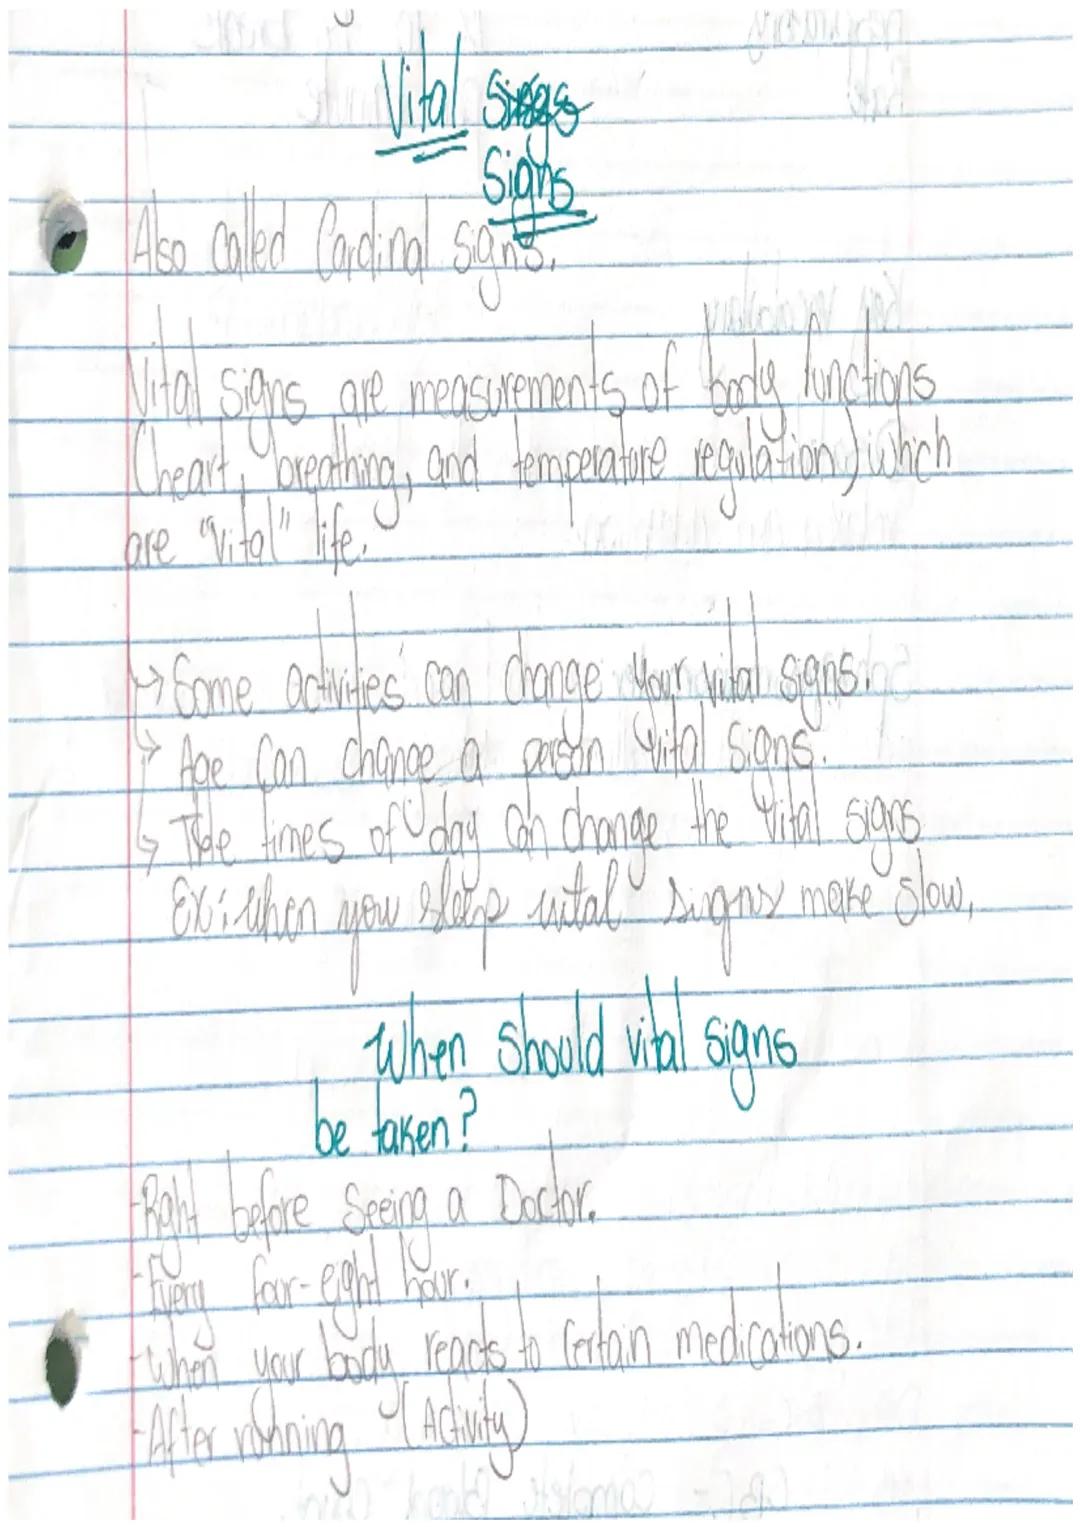 Vital
Signs
Also called Cardinal signs.
Vital signs are measurements of body functions
(heart, breathing, and temperature regulation) which
are "vital" life.
↳ Some activities can change your vital signs.
↳ Age can change a person vital signs.
↳ The times of day can change the vital signs
Ex: when you sleep vital signs make slow,
when should vital signs
be taken?
-Right before seeing a Doctor.
-Every four-eight hour.
-when your body reacts to certain medications.
-After running (Activity)